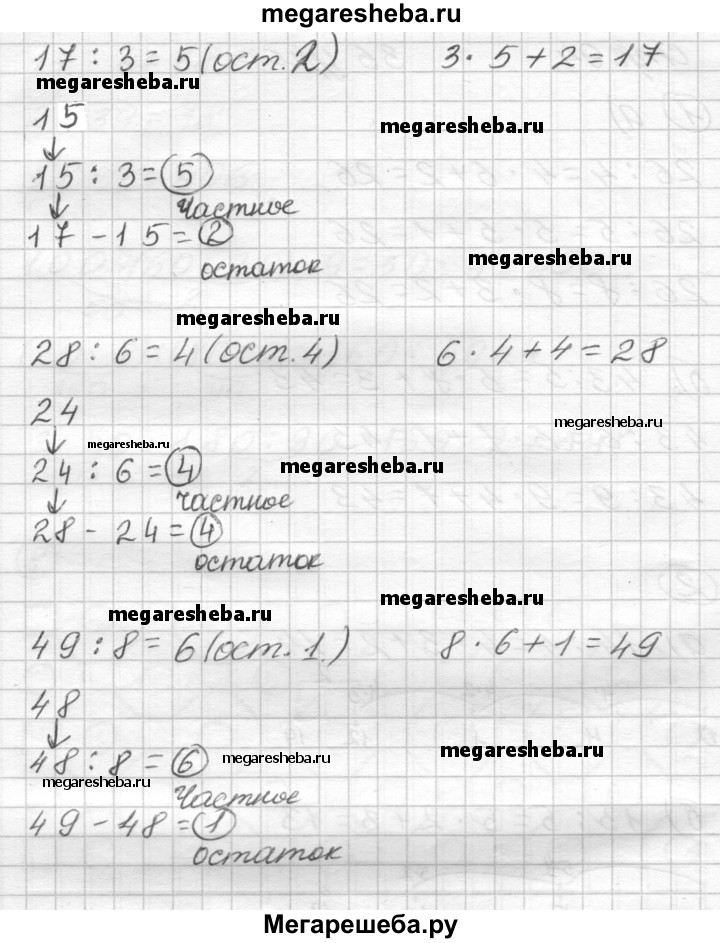 megaresheba.ru
17 : 3 = 5 (ост. 2) 3 · 5 + 2 = 17
megaresheba.ru
15 megaresheba.ru
↓
15 : 3 = 5
↓ частное
17 - 15 = 2
остаток megaresheba.ru
megaresheba.ru
28 : 6 = 4 (ост. 4) 6 · 4 + 4 = 28
24 megaresheba.ru
↓ megaresheba.ru
24 : 6 = 4 megaresheba.ru
↓ частное
28 - 24 = 4
остаток
megaresheba.ru megaresheba.ru
49 : 8 = 6 (ост. 1.) 8 · 6 + 1 = 49
48
↓
48 : 8 = 6 megaresheba.ru megaresheba.ru
megaresheba.ru частное
49 - 48 = 1
остаток
Мегарешеба.ру